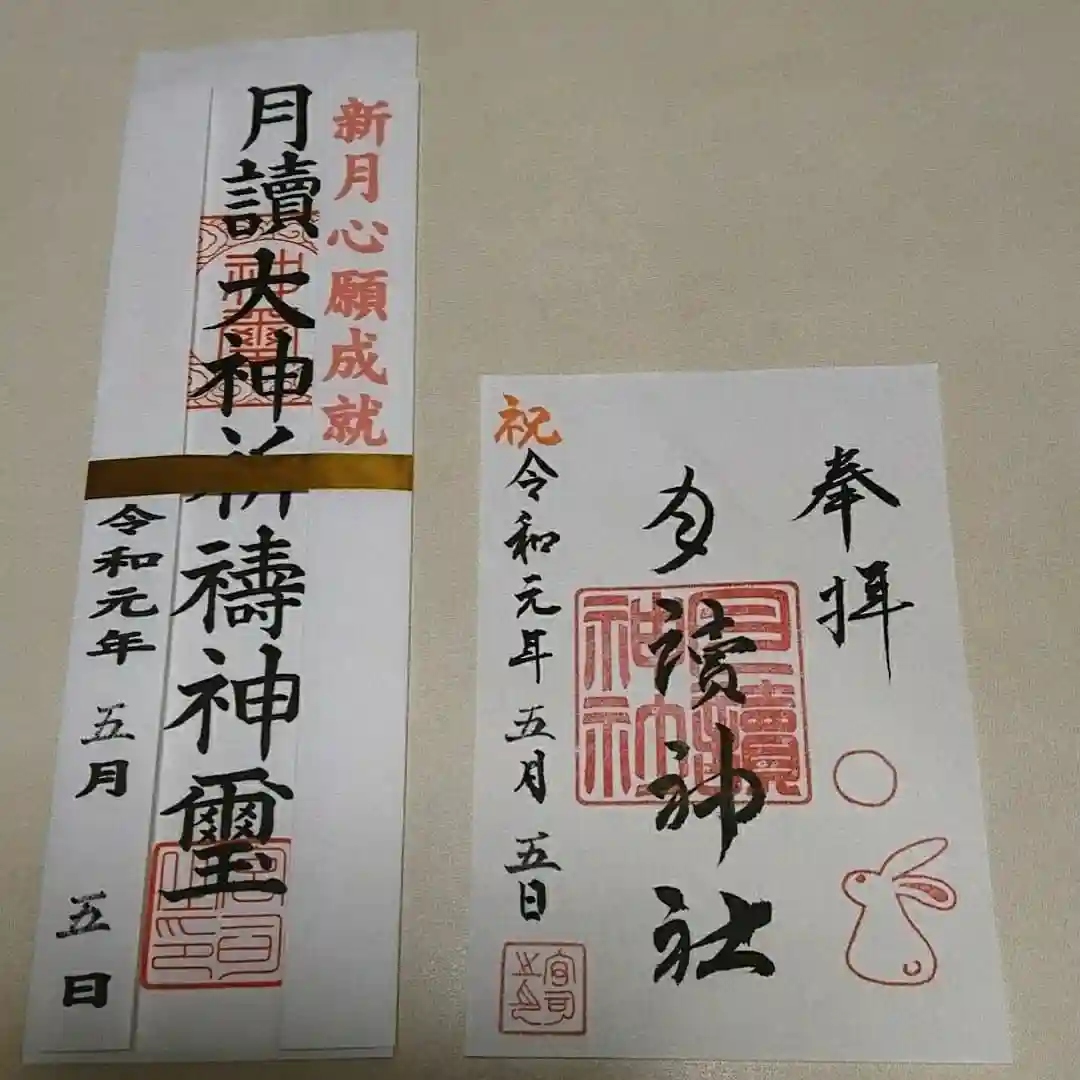 新月心願成就
月讀大神祈禱神璽
神璽
令和元年 五月 五日
宮司之印
奉拝
月讀神社
月讀神社
祝
令和元年 五月 五日
宮司之印